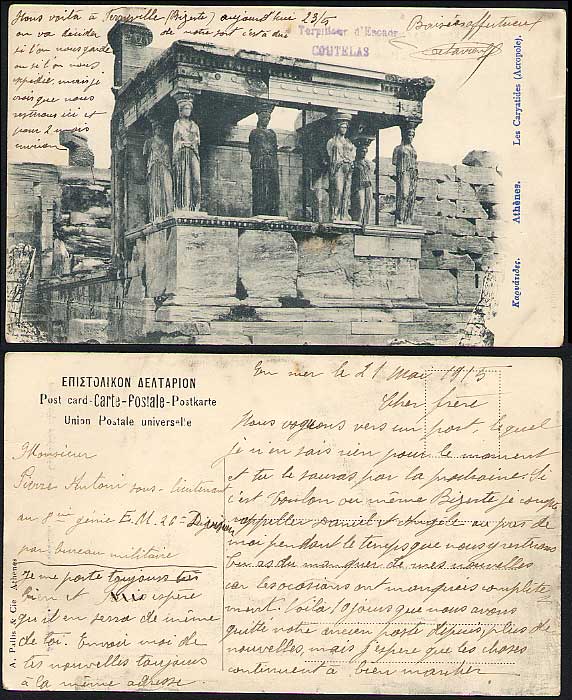 Nous voilà à Ferryville (Bizerte) aujourd'hui 23/5
on va décider de notre sort c'est à dire
si l'on nous garde
ou si l'on nous
expédie, mais je
crois que nous
resterons ici et
pour 2 mois
environ
Torpilleur d'Escadre
COUTELAS
Baisers affectueux
Καρυάτιδες. Athènes. Les Caryatides (Acropole).
ΕΠΙΣΤΟΛΙΚΟΝ ΔΕΛΤΑΡΙΟΝ
Post card-Carte-Postale-Postkarte
Union Postale universelle
Monsieur
Pierre Antoni sous-lieutenant
au génie E.M. 26e Division
par bureau militaire
Je me porte toujours très
bien et j'espère
qu'il en sera de même
de toi. Envoi moi de
tes nouvelles toujours
à la même adresse.
A. Pallis & Cie Athènes
En mer le 21 Mai 1915
Cher frère
Nous voguons vers un port, lequel
je n'en sais rien pour le moment
et tu le sauras par la prochaine. Si
c'est Toulon ou même Bizerte je compte
rappeller Daniel et Angèle au près de
moi pendant le temps que nous y resterons
tu as du manquer de mes nouvelles
car les occasions ont manqués complète
ment. Voila 10 jours que nous avons
quitté notre ancien poste depuis, plus de
nouvelles, mais j'espère que les choses
continuent à bien marcher